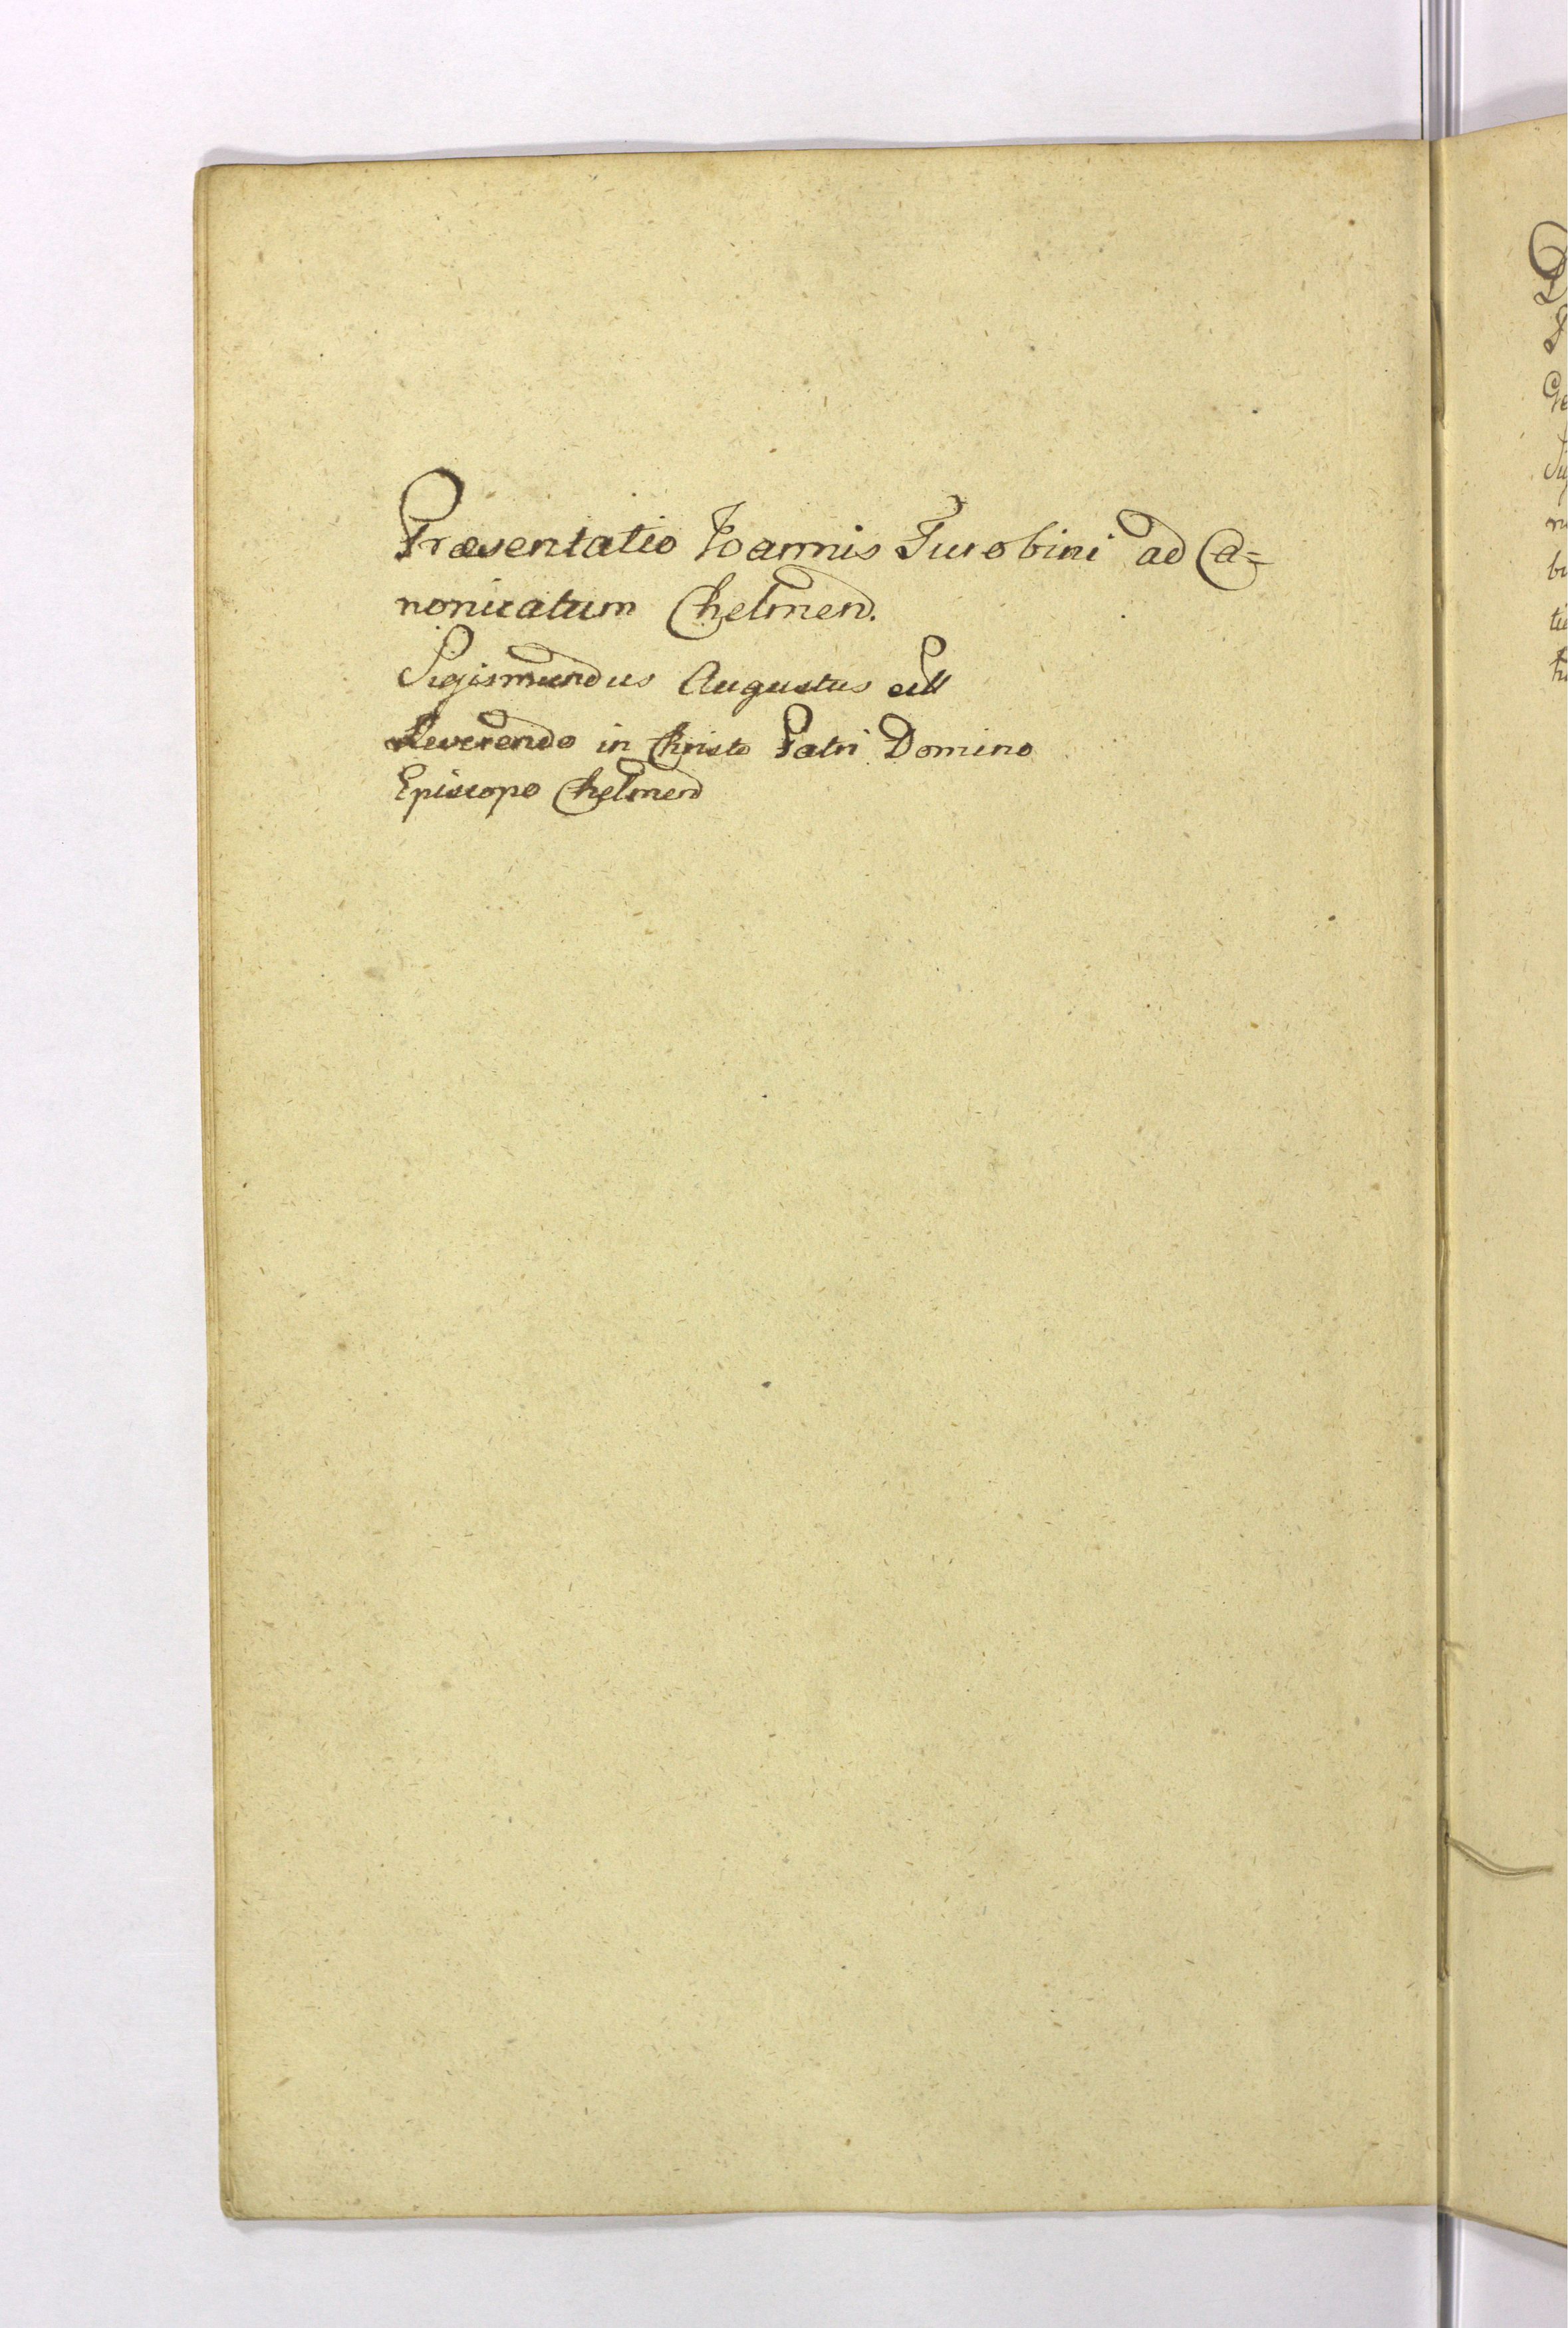 Præsentatio Ioannis Turobini ad Ca=
nonicatum Chelmen.
Sigismundus Augustus
Reverendo in Christo Patri Domino
Episcopo Chelmen